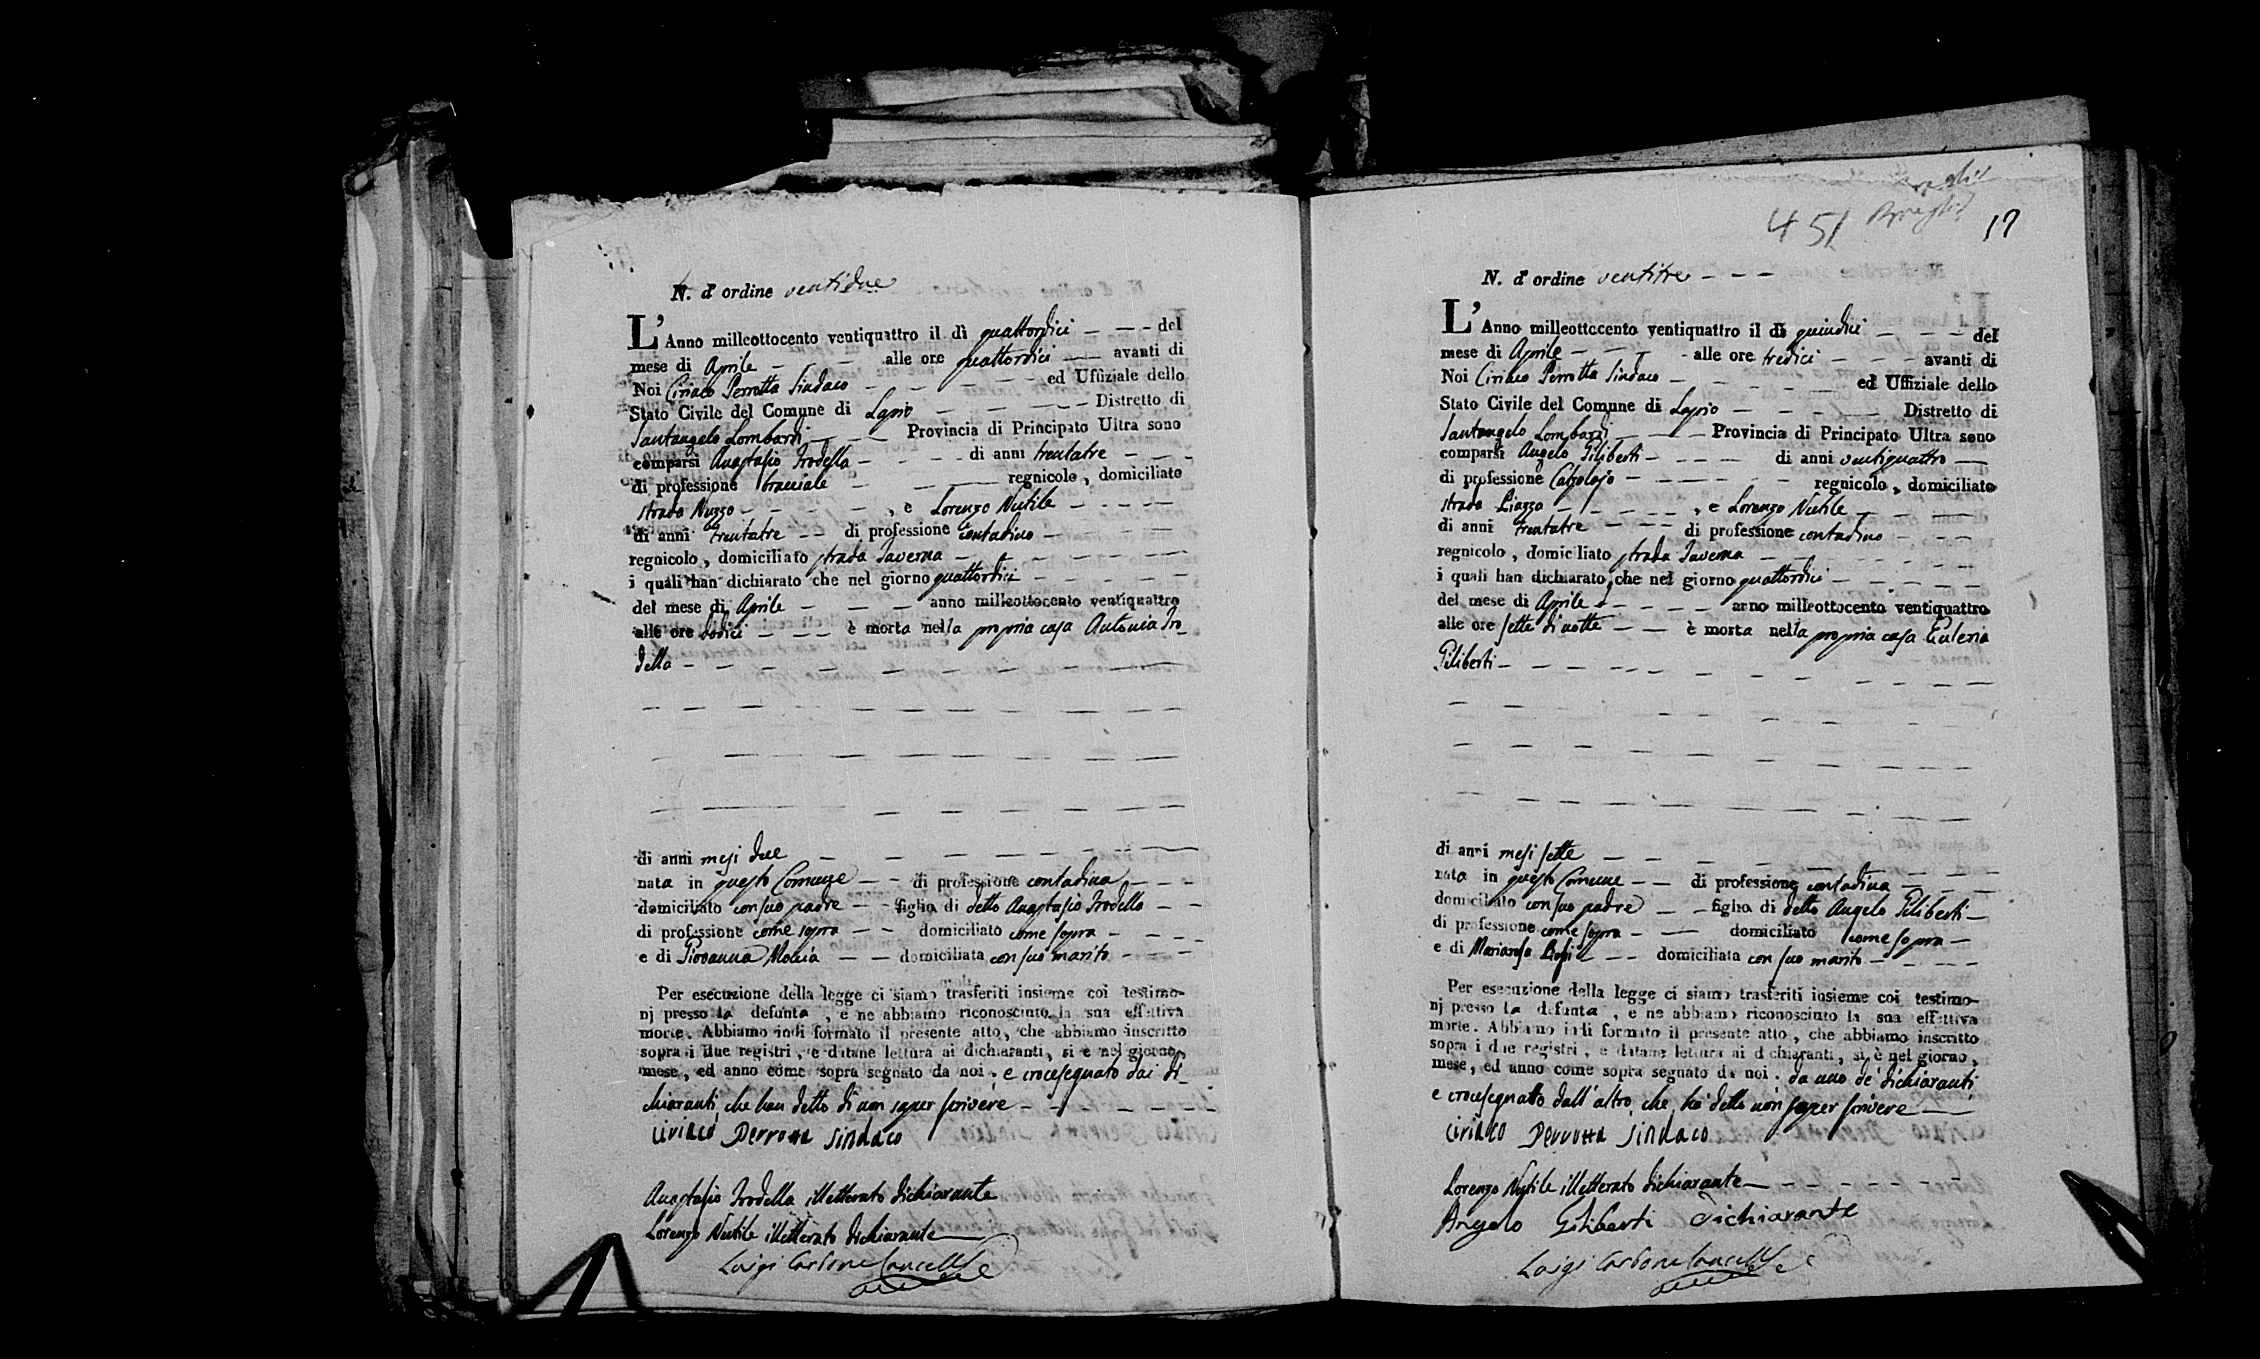 N. d' ordine ventidue
L' Anno milleottocento ventiquattro il dì quattordici - - - del
mese di Aprile - - alle ore quattordici — avanti di
Noi Ciriaco Perrotta Sindaco - - - - - - ed Uffiziale dello
Stato Civile del Comune di Lapio - - - - - Distretto di
Santangelo Lombardi - - - Provincia di Principato Ultra sono
comparsi Anastasio Trodella - - - - di anni trentatre - - - -
di professione bracciale - - - regnicolo, domiciliato
strada Nuzzo - - - - - , e Lorenzo Nutile - - - - -
di anni trentatre - - di professione contadino - - - -
regnicolo, domiciliato strada Taverna - - - - - - - -
i quali han dichiarato che nel giorno quattordici - - - - -
del mese di Aprile - - - anno milleottocento ventiquattro
alle ore dodici - - - è morta nella propria casa Antonia Tro-
della - - - - - - - - - - -
di anni mesi due - - - - - - - -
nata in questo Comune - - di professione contadina - - -
domiciliato con suo padre - - figlia di detto Anastasio Trodella - -
di professione come sopra - - domiciliato come sopra - - - - -
e di Giovanna - - domiciliata con suo marito - - -
Per esecuzione della legge ci siamo trasferiti insieme coi testimo-
nj presso la defunta , e ne abbiamo riconosciuto la sua effettiva
morte. Abbiamo indi formato il presente atto, che abbiamo inscritto
sopra i due registri, e datane lettura ai dichiaranti, si è nel giorno,
mese, ed anno come sopra segnato da noi. e crocesegnato dai di-
chiaranti, che han detto di non saper scrivere - - - - - - -
Ciriaco Perrotta Sindaco
Anastasio Trodella illetterato dichiarante
Lorenzo Nutile illetterato dichiarante —
Luigi Carbone Cancelle
451
17
N. d' ordine ventitre - - -
L' Anno milleottocento ventiquattro il dì quindici - - - - del
mese di Aprile - - - - - alle ore tredici - - - - avanti di
Noi Ciriaco Perrotta Sindaco - - - - - - ed Uffiziale dello
Stato Civile del Comune di Lapio - - - — Distretto di
Santangelo Lombardi - - - - Provincia di Principato Ultra sono
comparsi Angelo Giliberti - - - - - di anni ventiquattro —
di professione Calzolajo - - - - - - - regnicolo, domiciliato
strada Piazza - - - - - , e Lorenzo Nutile - - - -
di anni trentatre - - - di professione contadino - - - -
regnicolo, domiciliato strada Taverna - - - - - -
i quali han dichiarato che nel giorno quattordici - - - - - -
del mese di Aprile - - - - - anno milleottocento ventiquattro
alle ore sette di notte - - è morta nella propria casa Eulenia
Giliberti - - - - - - - - - - - - -
di anni mesi sette - - - - - - - -
nata in questo Comune - - di professione contadina - - -
domiciliato con suo padre - - figlia di detto Angelo Giliberti -
di professione come sopra - - domiciliato come sopra -
e di Mariarosa - - - domiciliata con suo marito - - - - -
Per esecuzione della legge ci siamo trasferiti insieme coi testimo-
nj presso la defunta , e ne abbiamo riconosciuto la sua effettiva
morte. Abbiamo indi formato il presente atto, che abbiamo inscritto
sopra i due registri, e datane lettura ai dichiaranti, si è nel giorno,
mese, ed anno come sopra segnato da noi. da uno de' dichiaranti
e crocesegnato dall' altro, che ha detto non saper scrivere —
Ciriaco Perrotta Sindaco
Lorenzo Nutile illetterato dichiarante - - - - - - -
Angelo Giliberti dichiarante
Luigi Carbone Cancelle